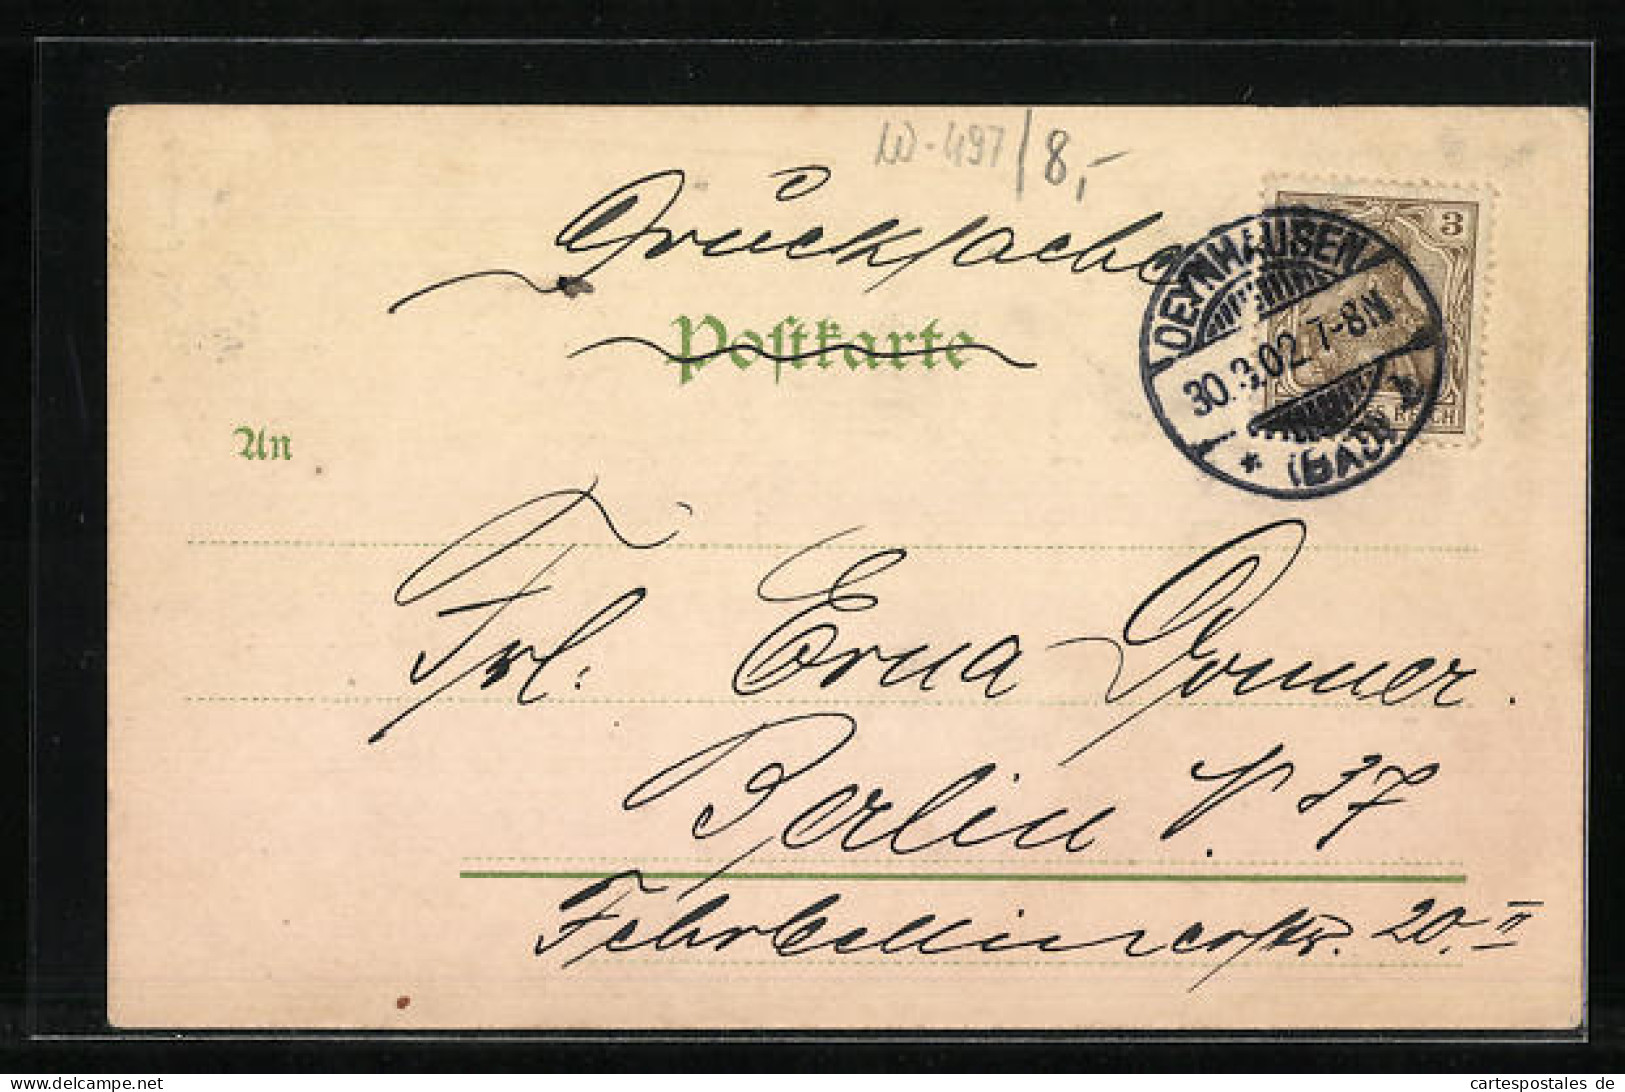 W-497/8,-
Drucksache
Postkarte
3
OEYNHAUSEN
30.3.02. 7-8N
* (BAD)
REICH
An
Frl. Erna Donner.
Berlin N. 37
Fehrbellinerstr. 20. II
delcampe.net
cartespostales de